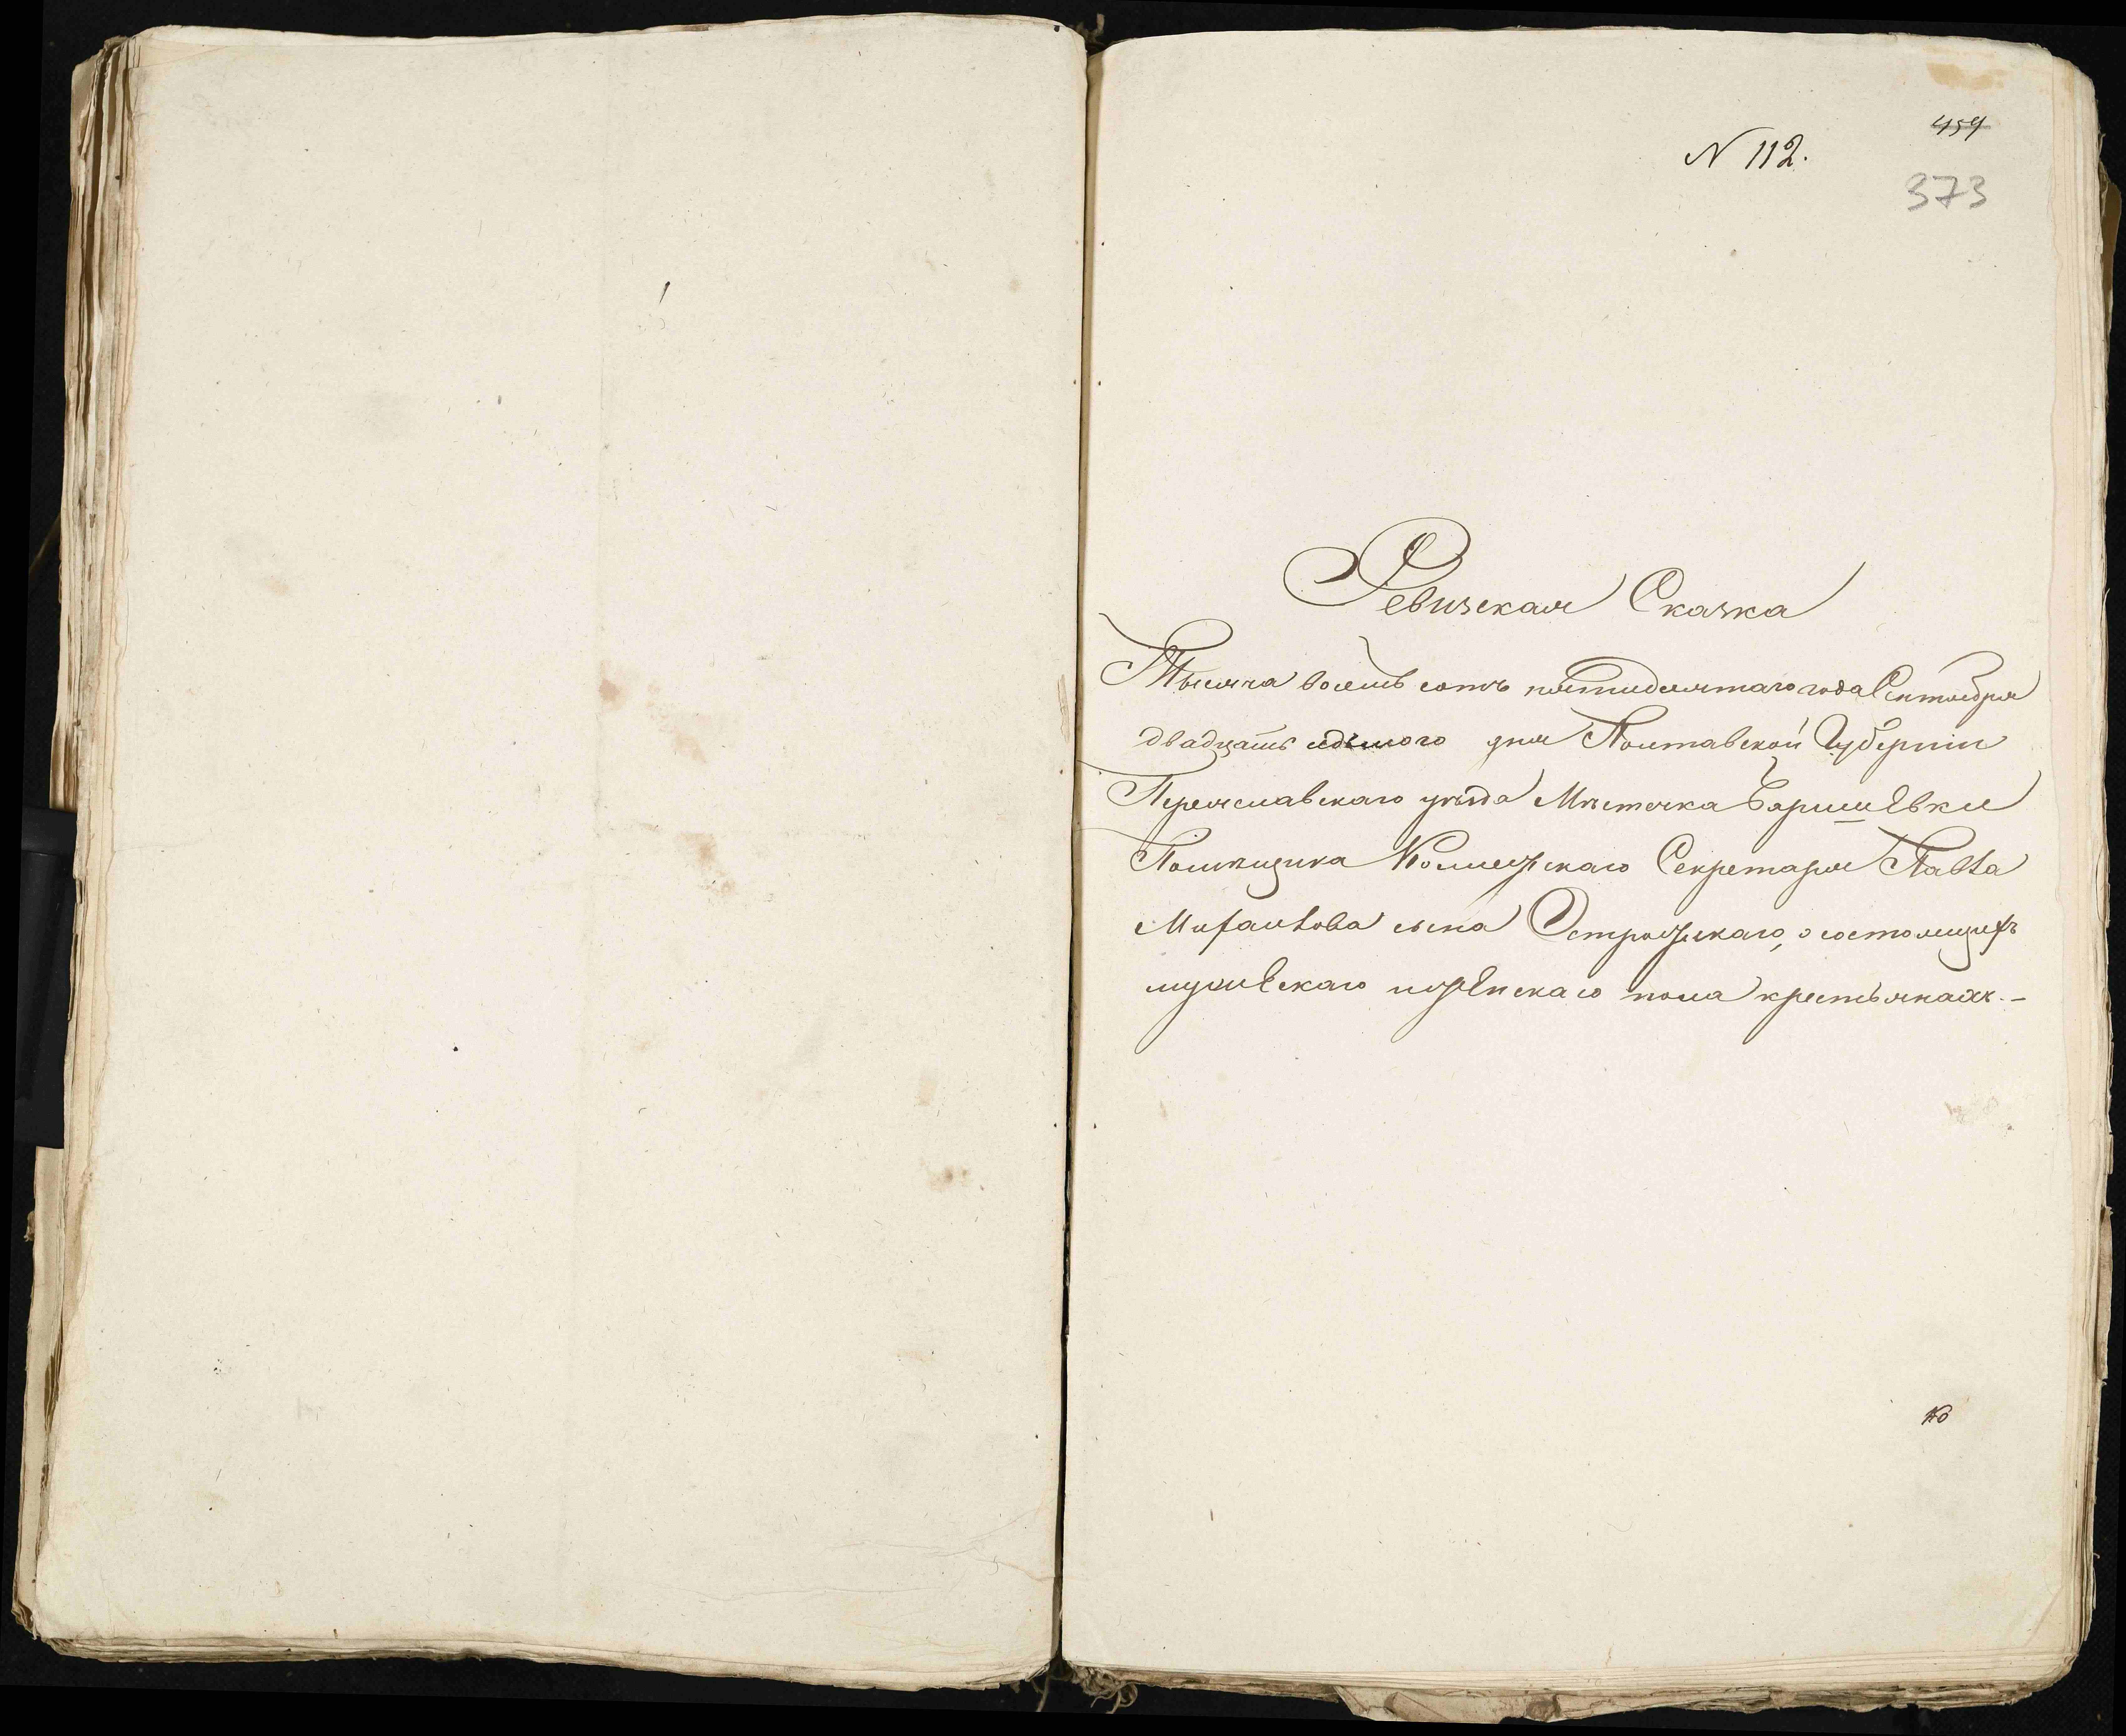 459
N 112.
373
Ревизская Сказка
Тысяча восемь сотъ пятидесятаго года Сентября
двадцать седьмого дня Полтавской Губернии
Переяславскаго уѣзда Мѣстечка Баришевки
Помѣщика Коллежскаго Секретаря Павла
Михайлова сына Остро́жскаго, о состоящихъ
мужескаго и женскаго пола крестьянахъ. –
Ко